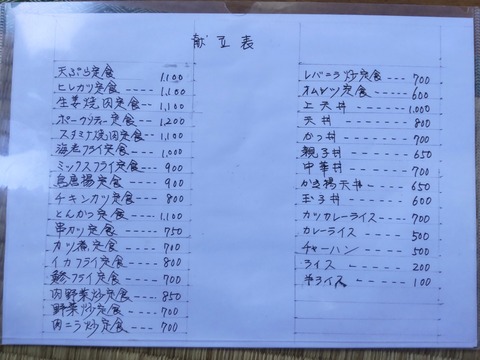 献立表
天ぷら定食 1,100
ヒレカツ定食 ---- 1,100
生姜焼肉定食 -- 1,100
ポークソティー定食 --- 1,200
スタミナ焼肉定食 -- 1,100
海老フライ定食 ---- 1,000
ミックスフライ定食 ---- 900
鳥唐揚定食 ----- 900
チキンカツ定食 ---- 800
とんかつ定食 ---- 1,100
串カツ定食 ----- 750
カツ煮定食 ----- 700
イカフライ定食 ---- 800
鯵フライ定食 ---- 700
肉野菜炒定食 ---- 850
野菜炒定食 ---- 700
肉ニラ炒定食 ---- 700
レバニラ炒定食 ---- 700
オムレツ定食 ---- 600
上天丼 ------- 1,000
天丼 ------- 800
かつ丼 ------- 700
親子丼 ------- 650
中華丼 ------- 700
かき揚天丼 ------ 650
玉子丼 ------- 600
カツカレーライス ----- 700
カレーライス ------ 500
チャーハン ------ 500
ライス ------- 200
半ライス ------ 100